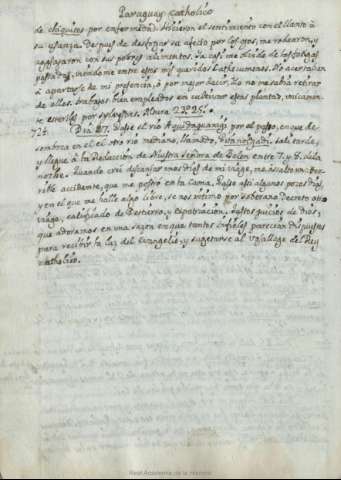 Paraguay Catholico
de chiquitos por enfermedad. Hicieron el sentimiento con el llanto a
su usanza. Despues de desfogar su afecto por los ojos, me rodearon, y
agasajaron con sus pobres alimentos. Ya casi me olvidè de las fatigas
passadas, viendome entre estos mis queridos Cathecumenos. No acertaban
à apartarse de mi presencia, ò por mejor decir, Yo no me sabia retirar
de ellos. trabajos bien empleados en cultivar estas plantas, unicamen-
te esteriles por Altura 22º 25'.
724. Dia 27. Passè el rio Aguidaguanigi por el passo, en que de-
semboca en el otro rio mediano, llamado, sali tarde,
y lleguè a la Reduccion de Nuestra Señora de Belen entre 7, y 8, de la
noche. Quando crei descansar unos dias de mi viage, me assaltò un ter-
rible accidente, que me postrò en la cama. Passè assi algunos pocos dias,
y en el que me hallè algo libre, se nos intimò por soberano Decreto otro
viage, calificado de Destierro, y Expatriacion. Justos juicios de Dios,
que adoramos en una sazon en que tantos infieles parecian dispuestos
para recibir la luz del Evangelio, y sugetarse al vassallage del Rey
Catholico.
Real Academia de la Historia